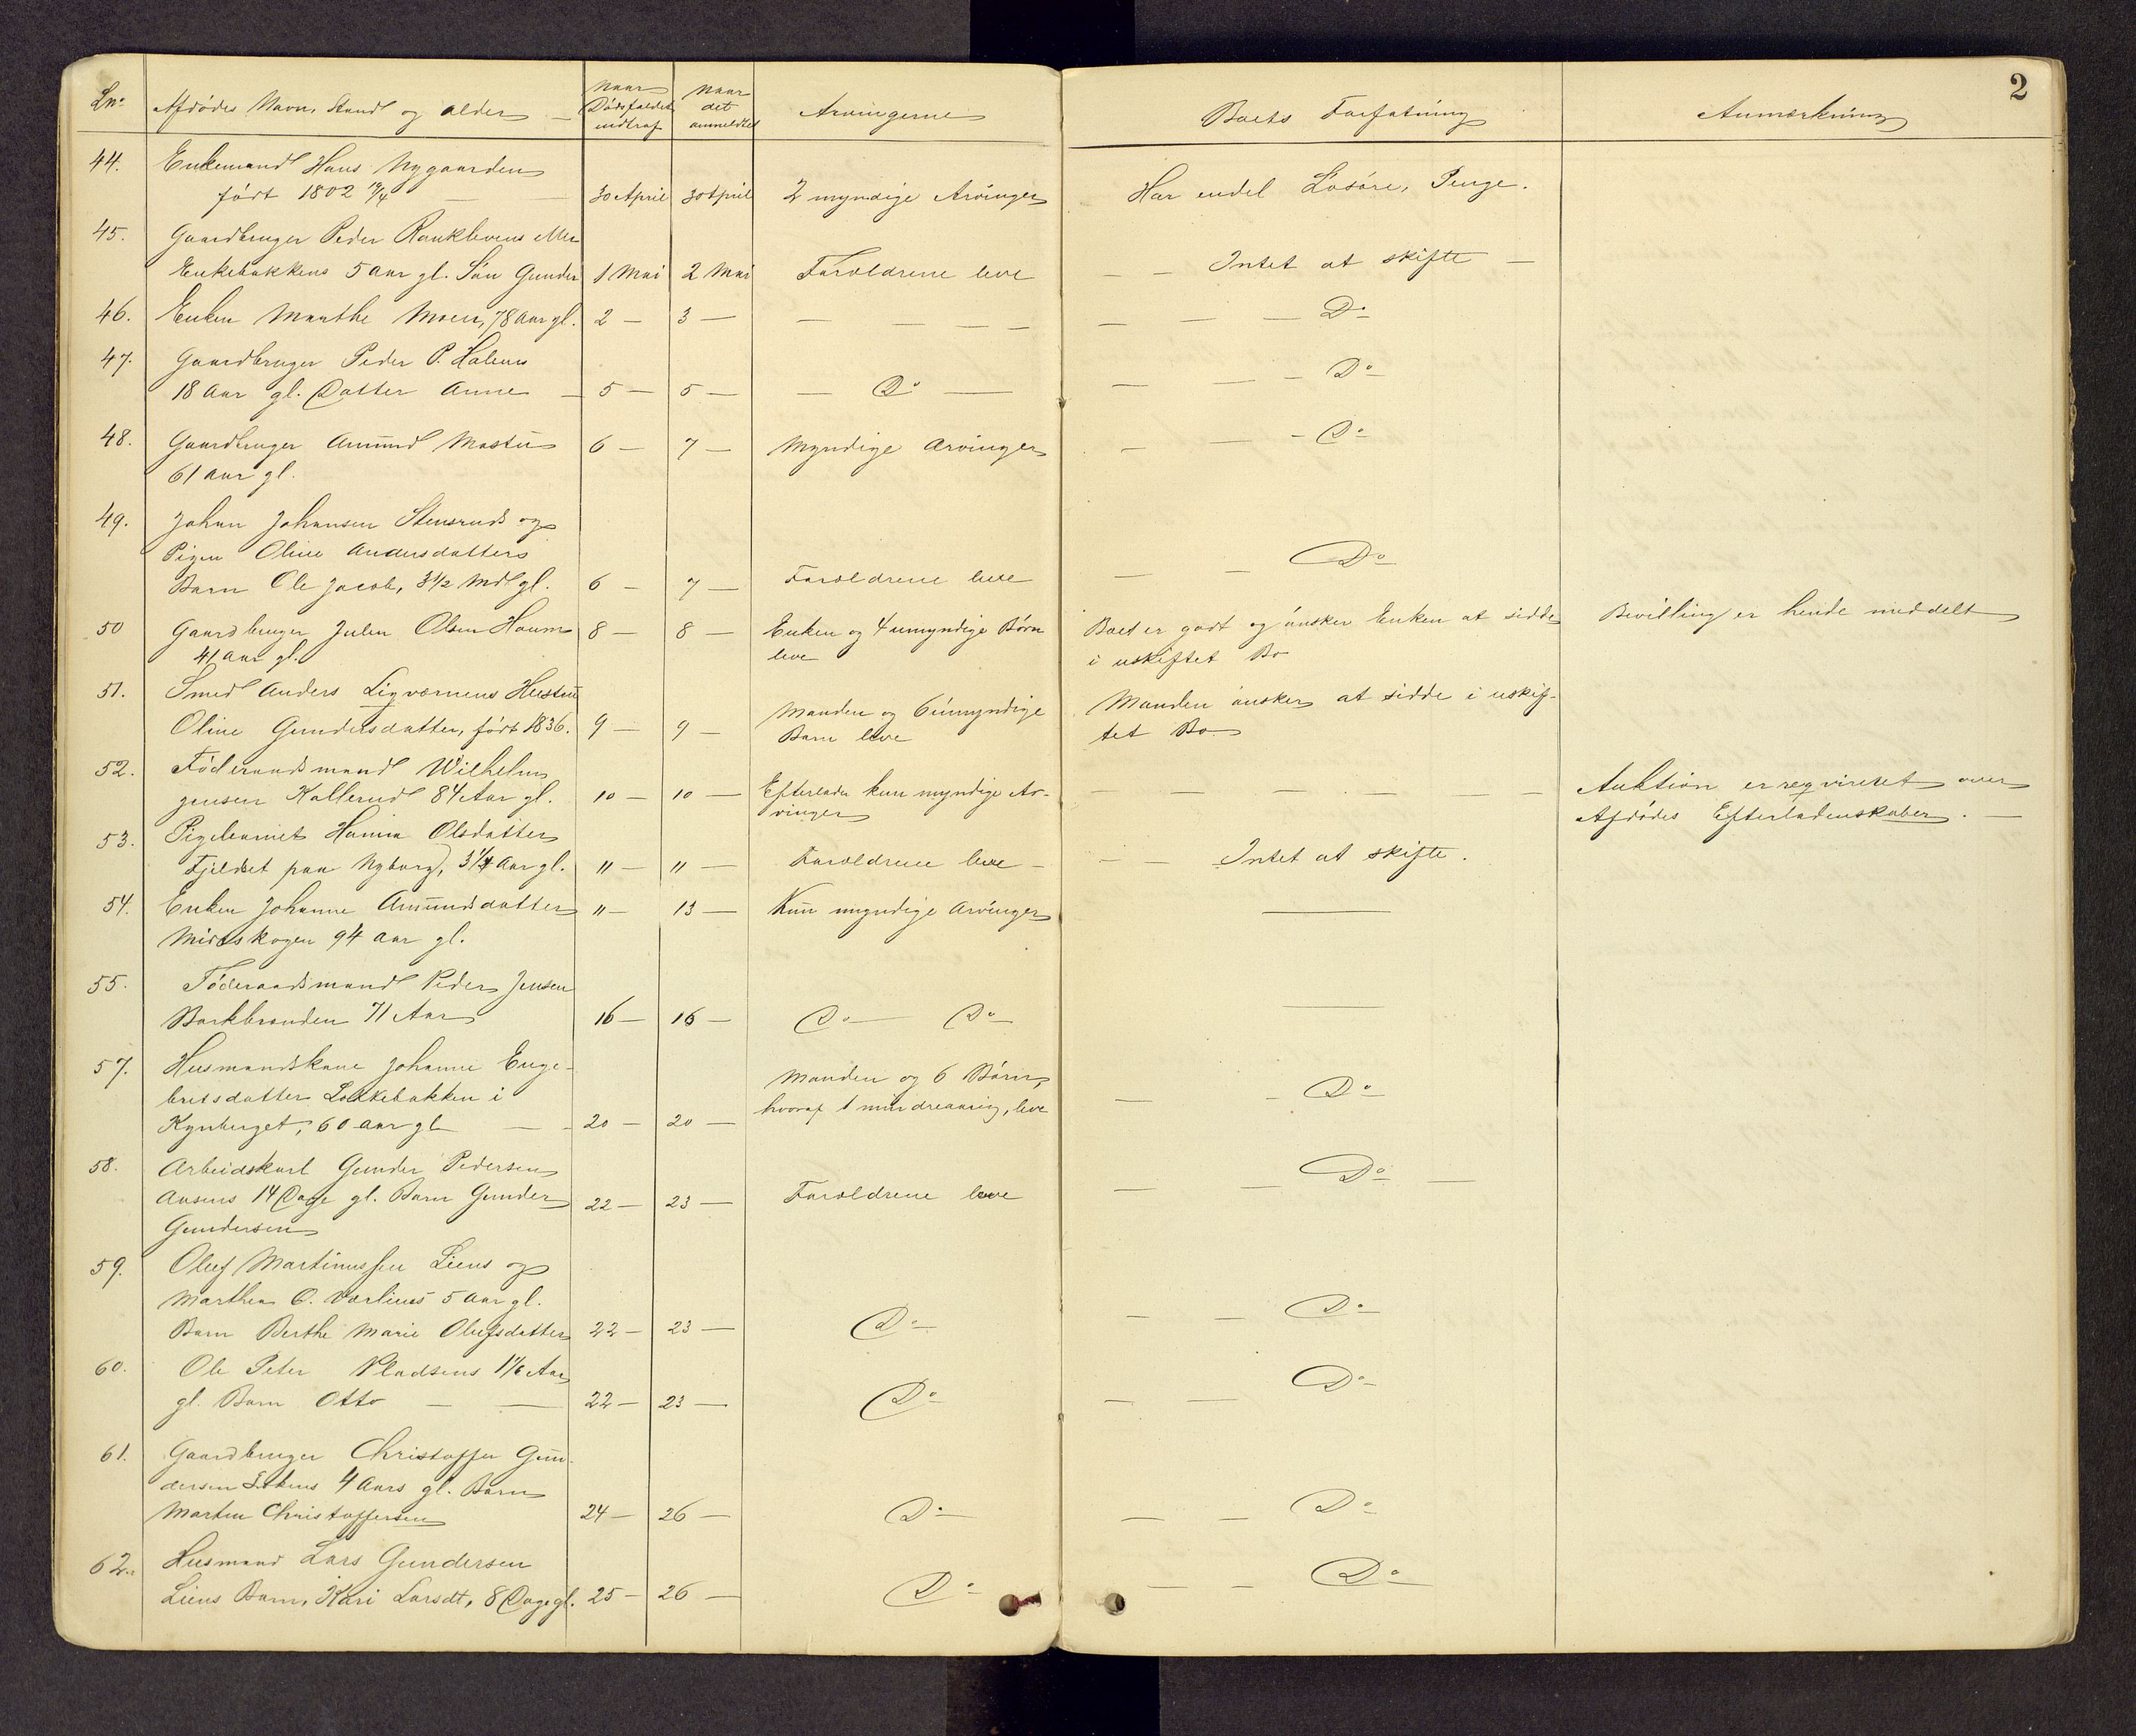 2
Lno Afdødes Navn, Stand og alder Naar Dødsfaldet indtraf Naar det anmeldtes Arvingerne Boets Forfatning Anmærkning
44. Enkemand Hans Nygaarden
født 1802 — — 30 April 30 April 2 myndige Arvinger Har endel Løsøre, Penge.
45. Gaardbruger Peder
Enkebakkens 5 aar gl. Søn Gunder 1 Mai 2 Mai Forældrene leve — — Intet at skifte —
46. Enken Marthe Moen, 78 aar gl. 2 — 3 — — — — — — — — Do
47. Gaardbruger Peder P. Holens
18 Aar gl. Datter Anne — 5 — 5 — — Do — — — — Do
48. Gaardbruger Amund Mastu 6 — 7 — Myndige Arvinger — — Do
61 aar gl.
49. Johan Johansen Stensruds og
Pigen Oline Andersdatters
Barn Ole Jacob, 3½ Md gl. 6 — 7 — Forældrene leve — — Do
50 Gaardbruger Julen Olsen Houm 8 — 8 — Enken og 4 umyndige Børn Boet er godt og ønsker Enken at sidde Bevilling er hende meddelt
41 aar gl. leve i uskiftet Bo
51. Smed Anders Ligværnens Hustru
Oline Gundersdatter, født 1836. 9 — 9 — Manden og 6 umyndige Manden ønsker at sidde i uskif-
Børn leve tet Bo
52. Føderaadsmand Wilhelm
Jensen Kollerud 84 Aar gl. 10 — 10 — Efterlader kun myndige Ar- — — — — — Auktion er reqvireret over
vinger Afdødes Efterladenskaber. —
53. Pigebarnet Hanna Olsdatter
Fjeldset paa Nyborg, 3¼ Aar gl. " — " — Forældrene leve — — — Intet at skifte.
54. Enken Johanne Amundsdatter " — 13 — Kun myndige Arvinger —
Midtskogen 94 aar gl.
55. Føderaadsmand Peder Jensen
Barkbranden 71 Aar 16 — 16 — Do — Do —
57. Husmandskone Johanne Enge-
bretsdatter Løkkebakken i Manden og 6 Børn, — — Do
Kynberget, 60 aar gl — — 20 — 20 — hvoraf 1 mindreaarig, leve
58. Arbeidskarl Gunder Pedersen
Aasens 14 Dage gl. Barn Gunder 22 — 23 — Forældrene leve — — Do —
Gundersen
59. Oluf Martinussen Liens og
Marthea O. Vorliens 5 Aar gl.
Barn Berthe Marie Olufsdatter 22 — 23 — Do — — Do
60. Ole Peter Pladsens 1 1/6 Aar
gl. Barn Otto — — 22 — 23 — Do — — Do
61. Gaardbruger Christoffer Gun-
dersen 4 Aars gl. Barn
Martin Christoffersen 24 — 26 — Do — — Do
62. Husmand Lars Gundersen
Liens Barn, Kari Larsdt, 8 Dage gl. 25 — 26 — Do — — Do